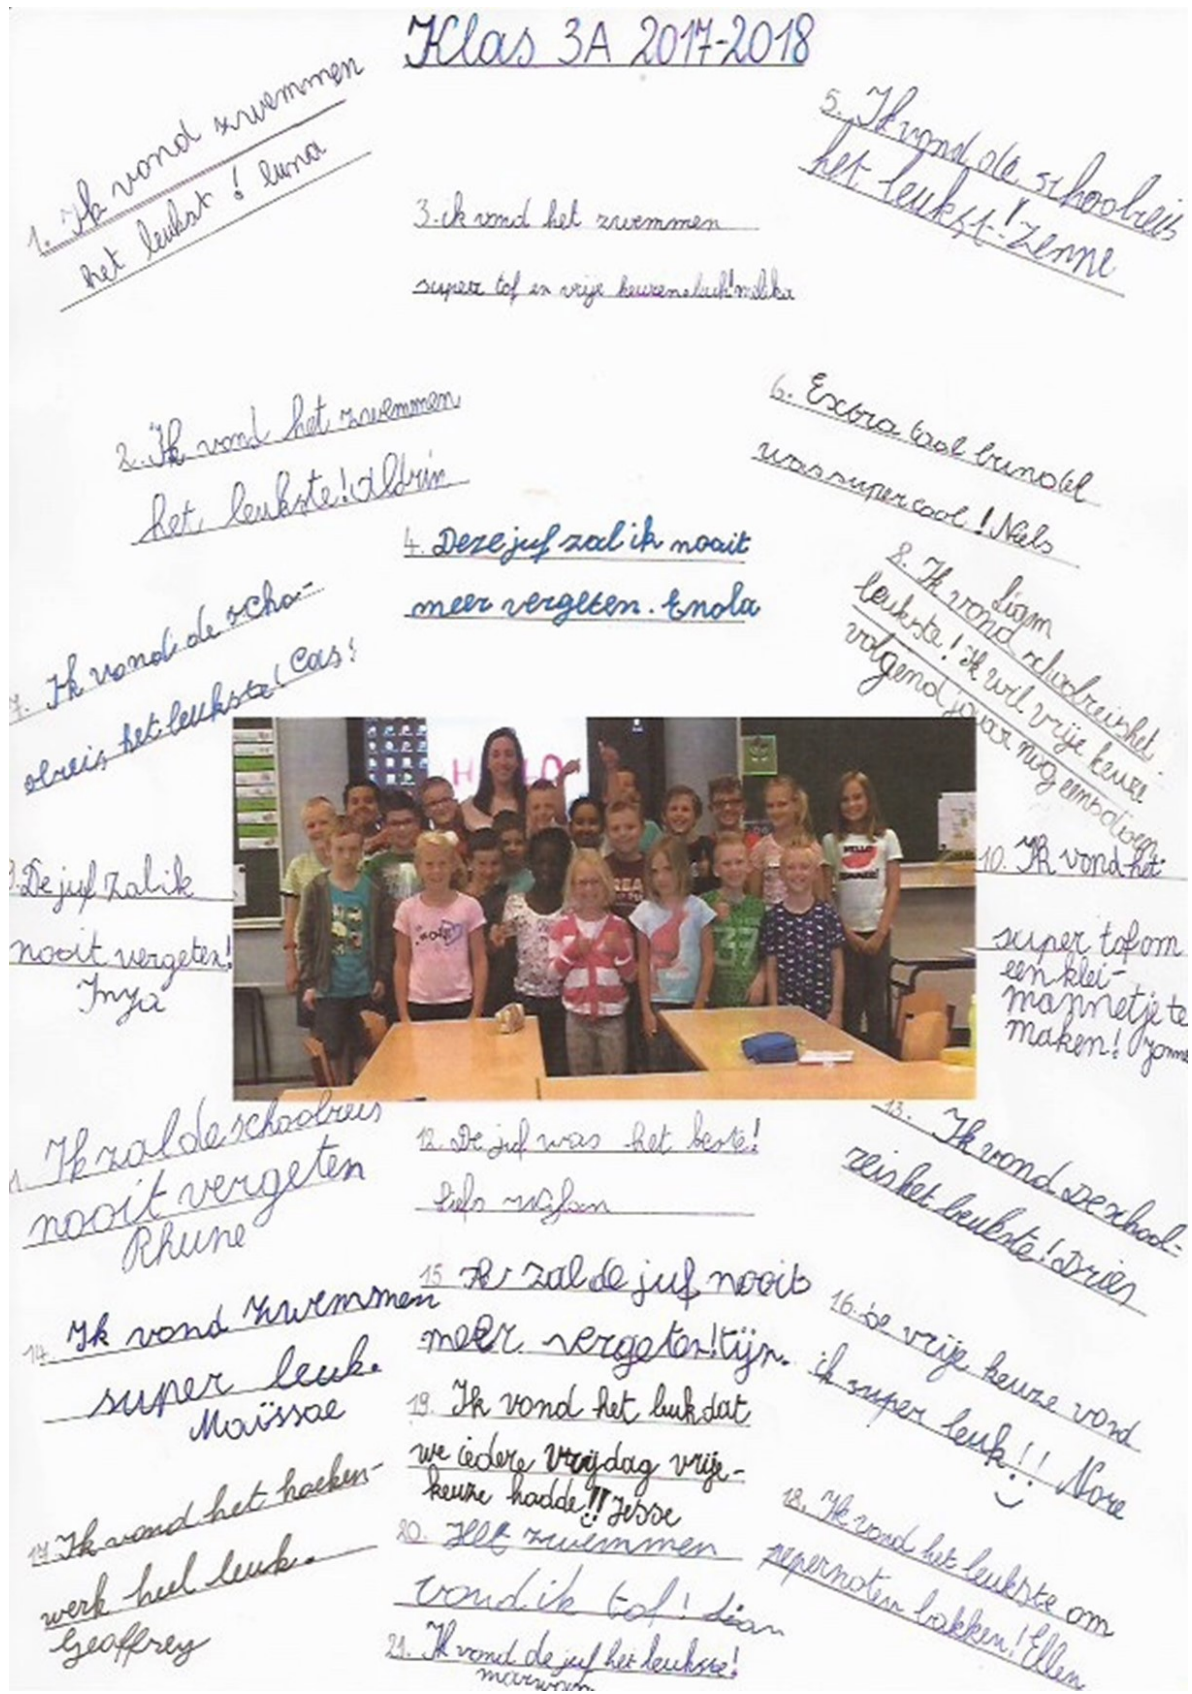 Klas 3A 2017-2018
1. Ik vond zwemmen
het leukst! luna
2. Ik vond het zwemmen
het leukste! Aldrin
3. ik vond het zwemmen
super tof en vrije keuren
4. Deze juf zal ik nooit
meer vergeten. Enola
5. Ik vond de schoolreis
het leukst! Zenne
6. Extra taal bundel
was super cool! Niels
7. Ik vond de scho-
olreis het leukste! Cas!
8. Ik vond schoolreis het
leukste! Ik wil vrije keuze
volgend jaar nog eens doen
Liam
De juf zal ik
nooit vergeten!
Inya
10. Ik vond het
super tof om
een klei-
mannetje te
maken!
HELLO
37
Ik zal de schoolreis
nooit vergeten
Rhune
12. De juf was het beste!
liefs
13. Ik vond de school-
reis het leukste! Dries
14. Ik vond zwemmen
super leuk.
Maïssae
15 Ik zal de juf nooit
meer vergeten! tijn.
16. De vrije keuze vond
ik super leuk!! Nore
17. Ik vond het hoeken-
werk heel leuk.
Geoffrey
18. Ik vond het leukste om
pepernoten bakken! Ellen
19. Ik vond het leuk dat
we iedere vrijdag vrije-
keuze hadde!! Jesse
20. Het zwemmen
vond ik tof! Sian
21. Ik vond de juf het leukste!